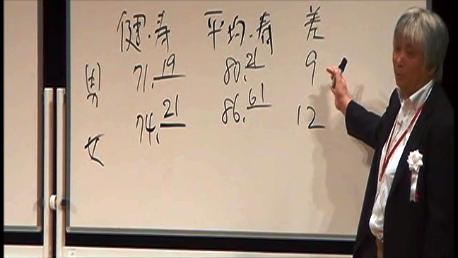 健・寿 平均・寿 差
男 71.19 80.21 9
女 74.21 86.61 12